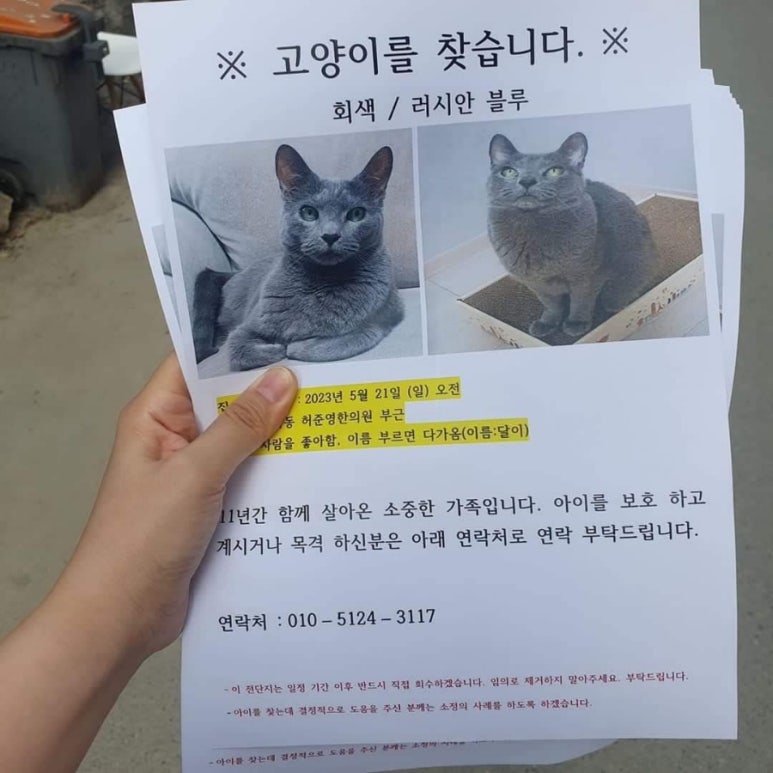 ※ 고양이를 찾습니다. ※
회색 / 러시안 블루
: 2023년 5월 21일 (일) 오전
허준영한의원 부근
사람을 좋아함, 이름 부르면 다가옴(이름:달이)
11년간 함께 살아온 소중한 가족입니다. 아이를 보호 하고
계시거나 목격 하신분은 아래 연락처로 연락 부탁드립니다.
연락처 : 010 – 5124 – 3117
- 이 전단지는 일정 기간 이후 반드시 직접 회수하겠습니다. 임의로 제거하지 말아주세요. 부탁드립니다.
- 아이를 찾는데 결정적으로 도움을 주신 분께는 소정의 사례를 하도록 하겠습니다.
- 아이를 찾는데 결정적으로 도움을 주신 분께는 소정의